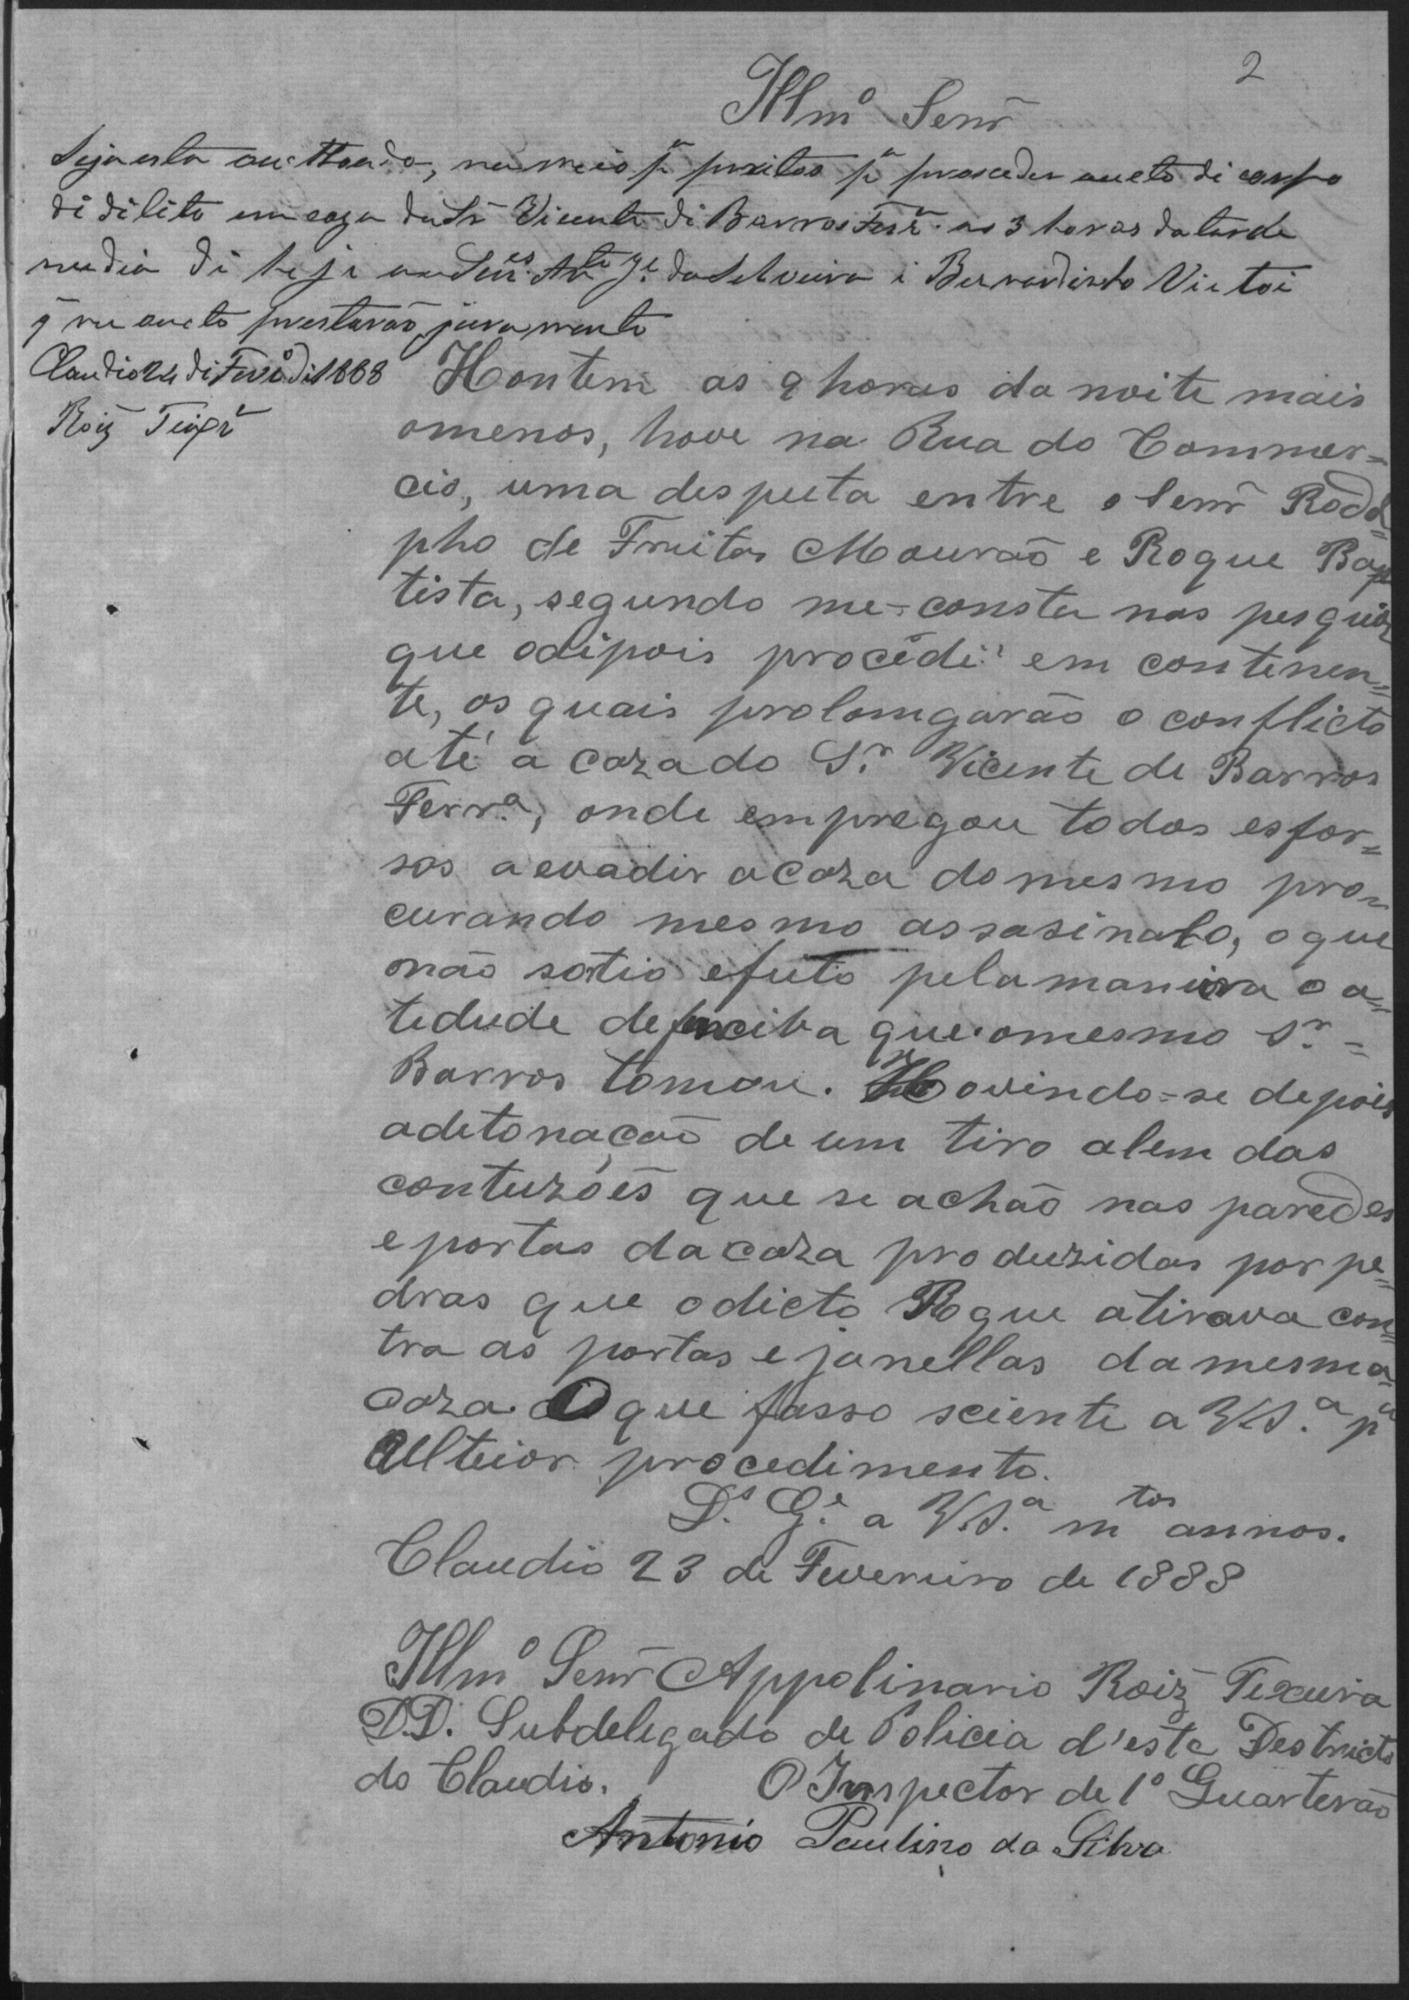 2
Illmº Senr̃
Seja esta auttoada, numeio pª peritos pª proseder aucto di corpo
di dilito em caza do Sr Vicente di Barros Ferrª as 3 horas da tarde
nudia di hoje aos Senres Antº Je da Silveira i Bernardinho Victoi
q̃ nu aucto prestarão juramento
Claudio 24 di Fevrº di 1888
Roiz Teixrª
Hontem as 9 horas da noite mais
omenos, hove na Rua do Commer=
cio, uma desputa entre o Senr̃ Rodol=
pho de Freitas Mourão e Roque Bap=
tista, segundo me=consta nas pesquizas
que odipois procédi em continen=
te, os quais prolomgarão o conflicto
até a caza do Sr. Vicente de Barros
Ferrª, onde empregou todos esfor=
sos a evadir a caza do mesmo pro=
curando mesmo assasinalo, o que
não sortio efeito pela maneira e a=
tedude defenciva que o mesmo Sr. =
Barros tomou. ovindo=se depois
a detonação de um tiro alem das
contuzóẽs que se achão nas paredes
e portas da caza produzidas por pe=
dras que o dicto Roque atirava con=
tra as portas e janellas da mesma=
caza. O que fasso sciente a V.S.ª pª
Ulteior procedimento.
D.s G.e a V.S.ª mtos annos.
Claudio 23 de Fevereiro de 1888
Illmº Senr̃ Appolinario Roiz̃ Texeira
D.D. Subdelegado de Policia d'este Destricto
do Claudio. O Inspector de 1º Quarterão
Antonio Paulino da Silva